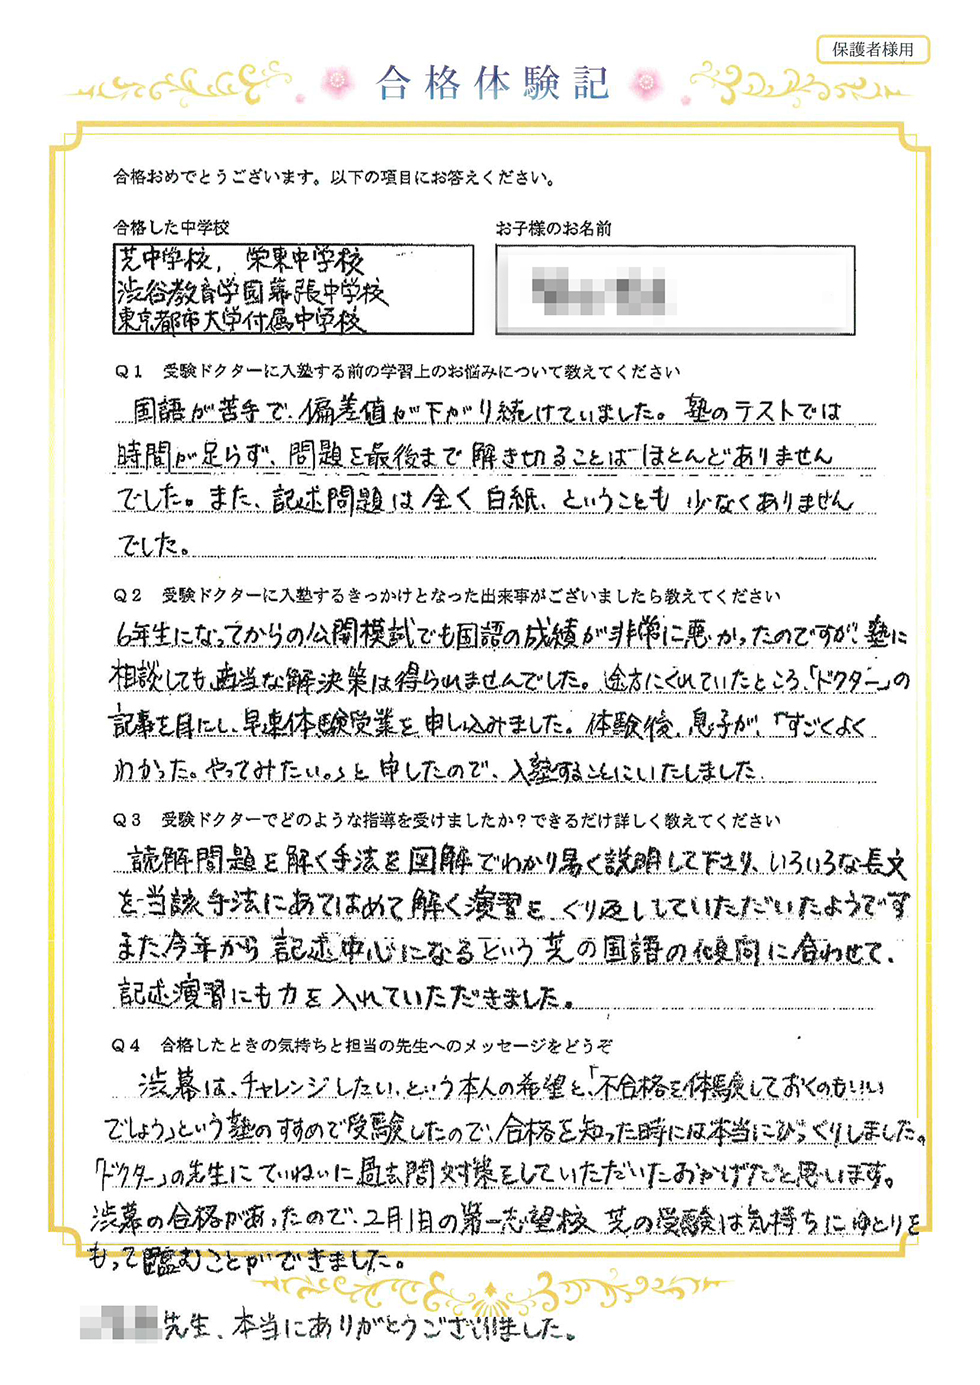 保護者様用
合格体験記
合格おめでとうございます。以下の項目にお答えください。
合格した中学校
お子様のお名前
芝中学校, 栄東中学校
渋谷教育学園幕張中学校
東京都市大学付属中学校
Q1 受験ドクターに入塾する前の学習上のお悩みについて教えてください
国語が苦手で、偏差値が下がり続けていました。塾のテストでは
時間が足らず、問題を最後まで解き切ることはほとんどありません
でした。また、記述問題は全く白紙、ということも少なくありません
でした。
Q2 受験ドクターに入塾するきっかけとなった出来事がございましたら教えてください
6年生になってからの公開模試でも国語の成績が非常に悪かったのですが、塾に
相談しても適当な解決策は得られませんでした。途方にくれていたところ、「ドクター」の
記事を目にし、早速体験授業を申し込みました。体験後、息子が、「すごくよく
わかった。やってみたい。」と申したので、入塾することにいたしました.
Q3 受験ドクターでどのような指導を受けましたか？できるだけ詳しく教えてください
読解問題を解く手法を図解でわかり易く説明して下さり、いろいろな長文
を当該手法にあてはめて解く演習を、くり返ししていただいたようです
また今年から記述中心になるという芝の国語の傾向に合わせて、
記述演習にも力を入れていただきました。
Q4 合格したときの気持ちと担当の先生へのメッセージをどうぞ
渋幕は、チャレンジしたい、という本人の希望と、「不合格を体験しておくのもいい
でしょう」という塾のすすめで受験したので、合格を知った時には本当にびっくりしました。
「ドクター」の先生にていねいに過去問対策をしていただいたおかげだと思います。
渋幕の合格があったので、2月1日の第一志望校 芝の受験は気持ちにゆとりを
もって臨むことができました。
先生、本当にありがとうございました。